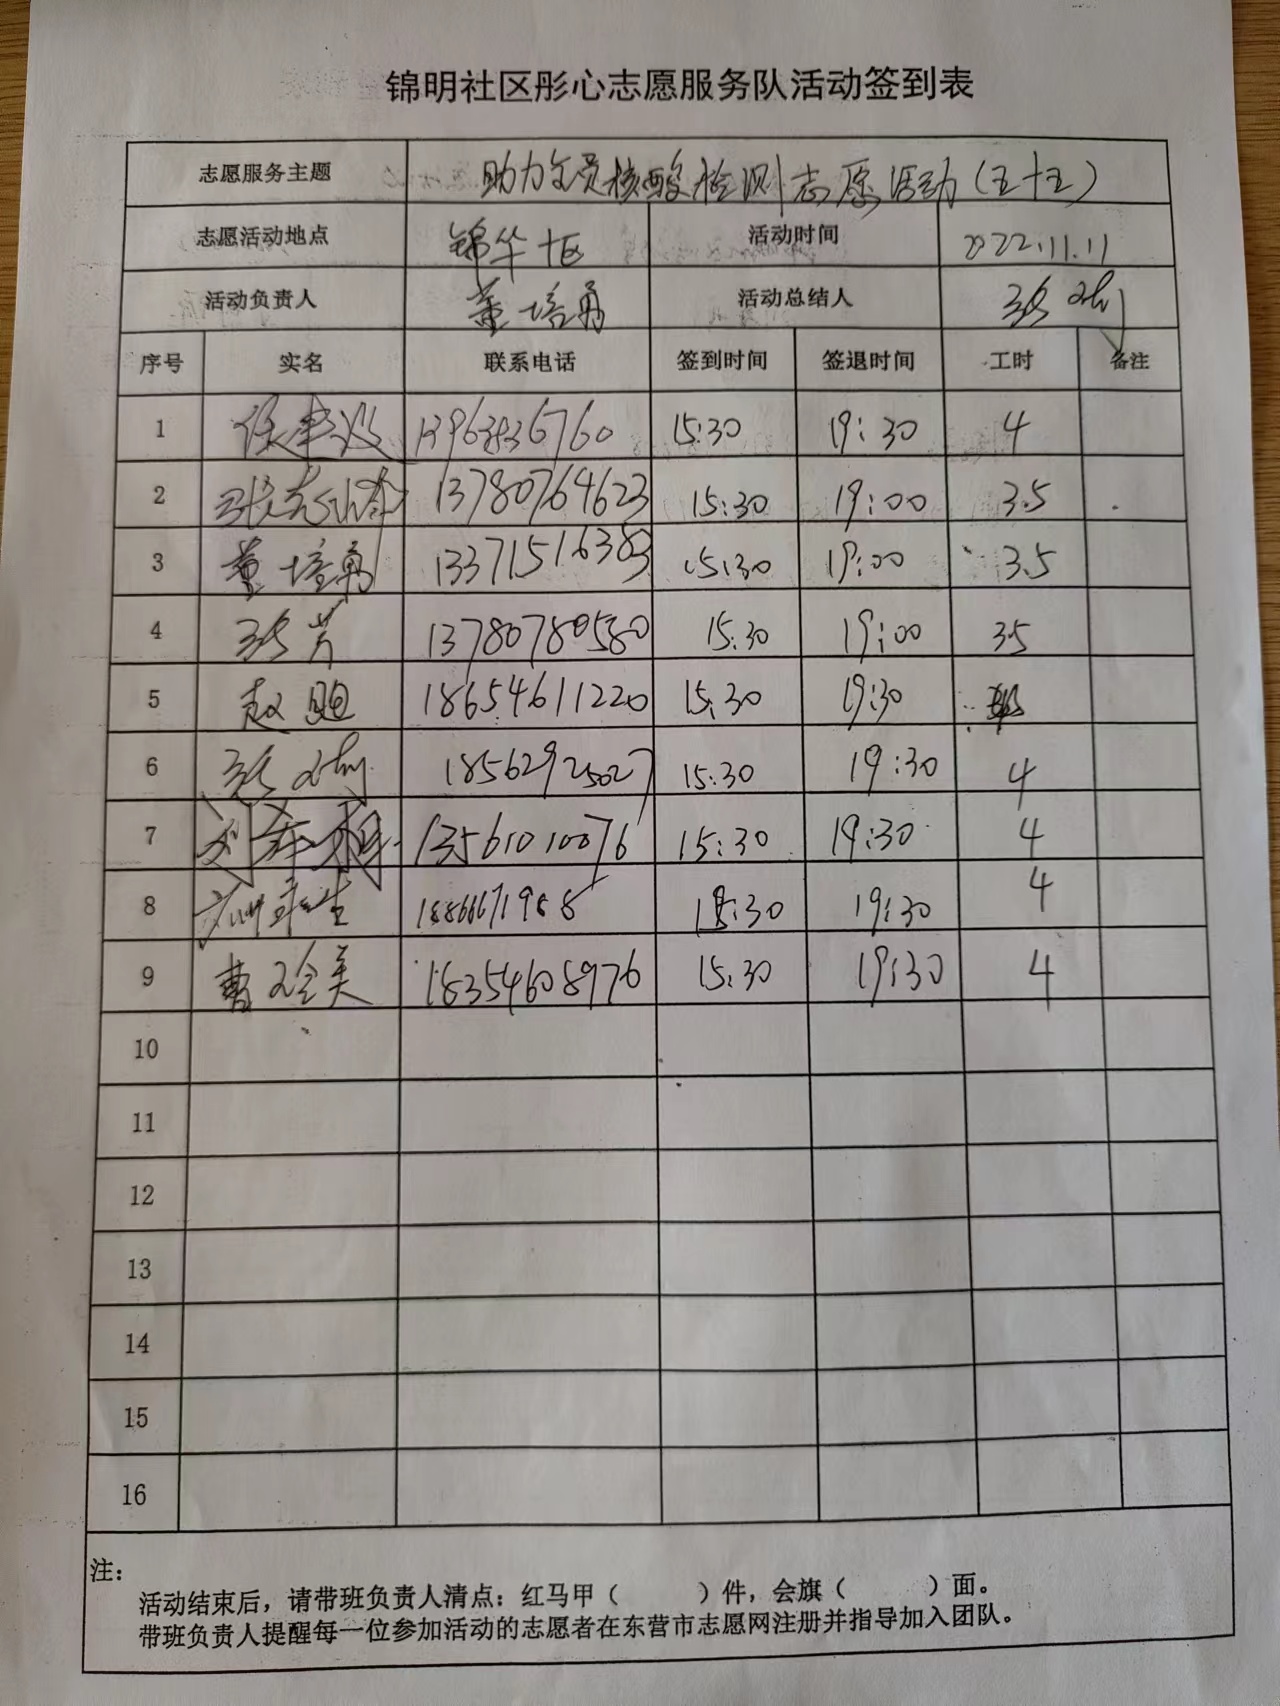 锦明社区彤心志愿服务队活动签到表
志愿服务主题 助力全员核酸检测志愿活动(五十五)
志愿活动地点 锦华十区 活动时间 2022.11.11
活动负责人 董培勇 活动总结人 张
序号 实名 联系电话 签到时间 签退时间 工时 备注
1 15:30 19:30 4
2 张 13780764623 15:30 19:00 3.5
3 董培勇 13371516383 15:30 19:00 3.5
4 张芳 13780780580 15:30 19:00 3.5
5 赵 18654611220 15:30 19:30
6 张 18562925027 15:30 19:30 4
7 刘 13561010076 15:30 19:30 4
8 15:30 19:30 4
9 曹 美 18354608976 15:30 19:30 4
10
11
12
13
14
15
16
注:
活动结束后,请带班负责人清点:红马甲( )件,会旗( )面。
带班负责人提醒每一位参加活动的志愿者在东营市志愿网注册并指导加入团队。